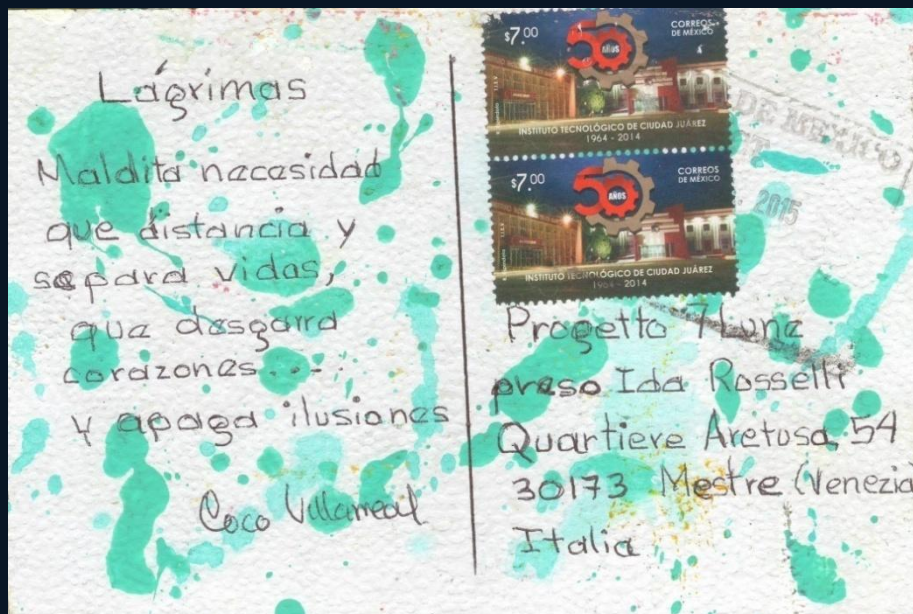 Lágrimas
Maldita necesidad
que distancia y
separa vidas,
que desgarra
corazones...
y apaga ilusiones
Coco Villarreal
$7.00
50
AÑOS
CORREOS
DE MÉXICO
INSTITUTO TECNOLÓGICO DE CIUDAD JUÁREZ
1964 - 2014
$7.00
50
AÑOS
CORREOS
DE MÉXICO
INSTITUTO TECNOLÓGICO DE CIUDAD JUÁREZ
1964 - 2014
DE MÉXICO
2015
Progetto 7Lune
preso Ida Rosselli
Quartiere Aretusa, 54
30173 Mestre (Venezia
Italia